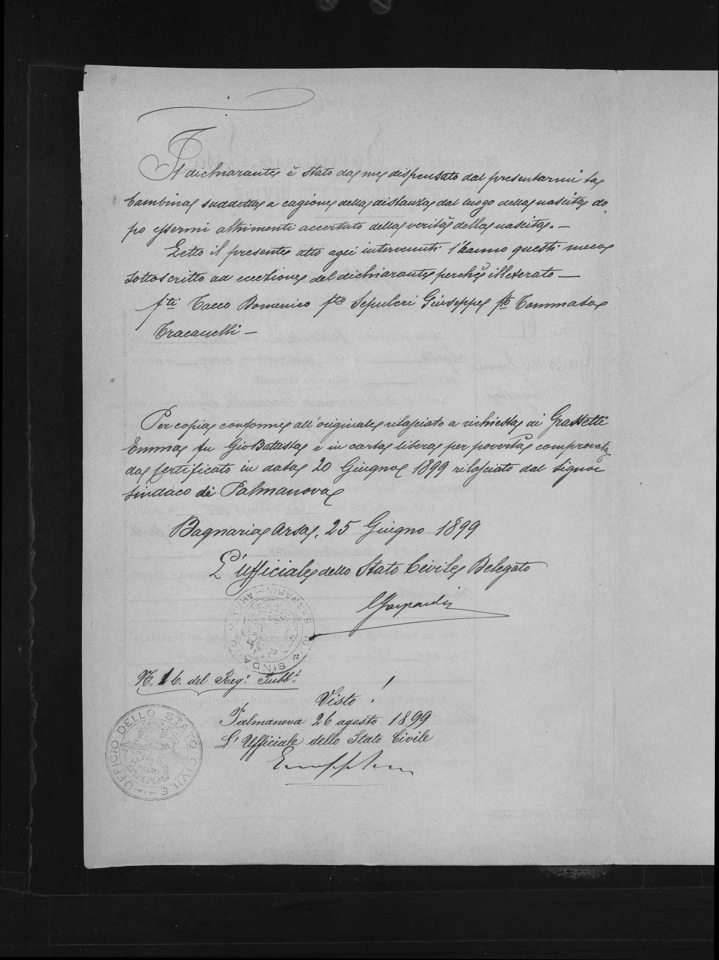 Il dichiarante è stato da me dispensato dal presentarmi la
bambina suddetta a cagione della distanza dal luogo della nascita do
po essermi altrimenti accertato della verità della nascita. -
Letto il presente atto agli intervenuti l'hanno questi meco
sottoscritto ad eccezione del dichiarante perchè illeterato -
f.ti Tacco Domenico f.to Sepulcri Giuseppe f.to Tommaso
Tracanelli -
Per copia conforme all'originale rilasciato a richiesta di Grassetti
Emma fu Gio Batatta e in carta libera per povertà comprovata
da certificato in data 20 Giugno 1899 rilasciato dal Signor
Sindaco di Palmanova
Bagnaria Arsa, 25 Giugno 1899
L'ufficiale dello Stato Civile Delegato
Gaspardis
SINDA
N. 16. del Reg.o Pubb.i
Visto!
Palmanova 26 agosto 1899
L'Ufficiale dello Stato Civile
UFFICIO DELLO STATO CIVILE